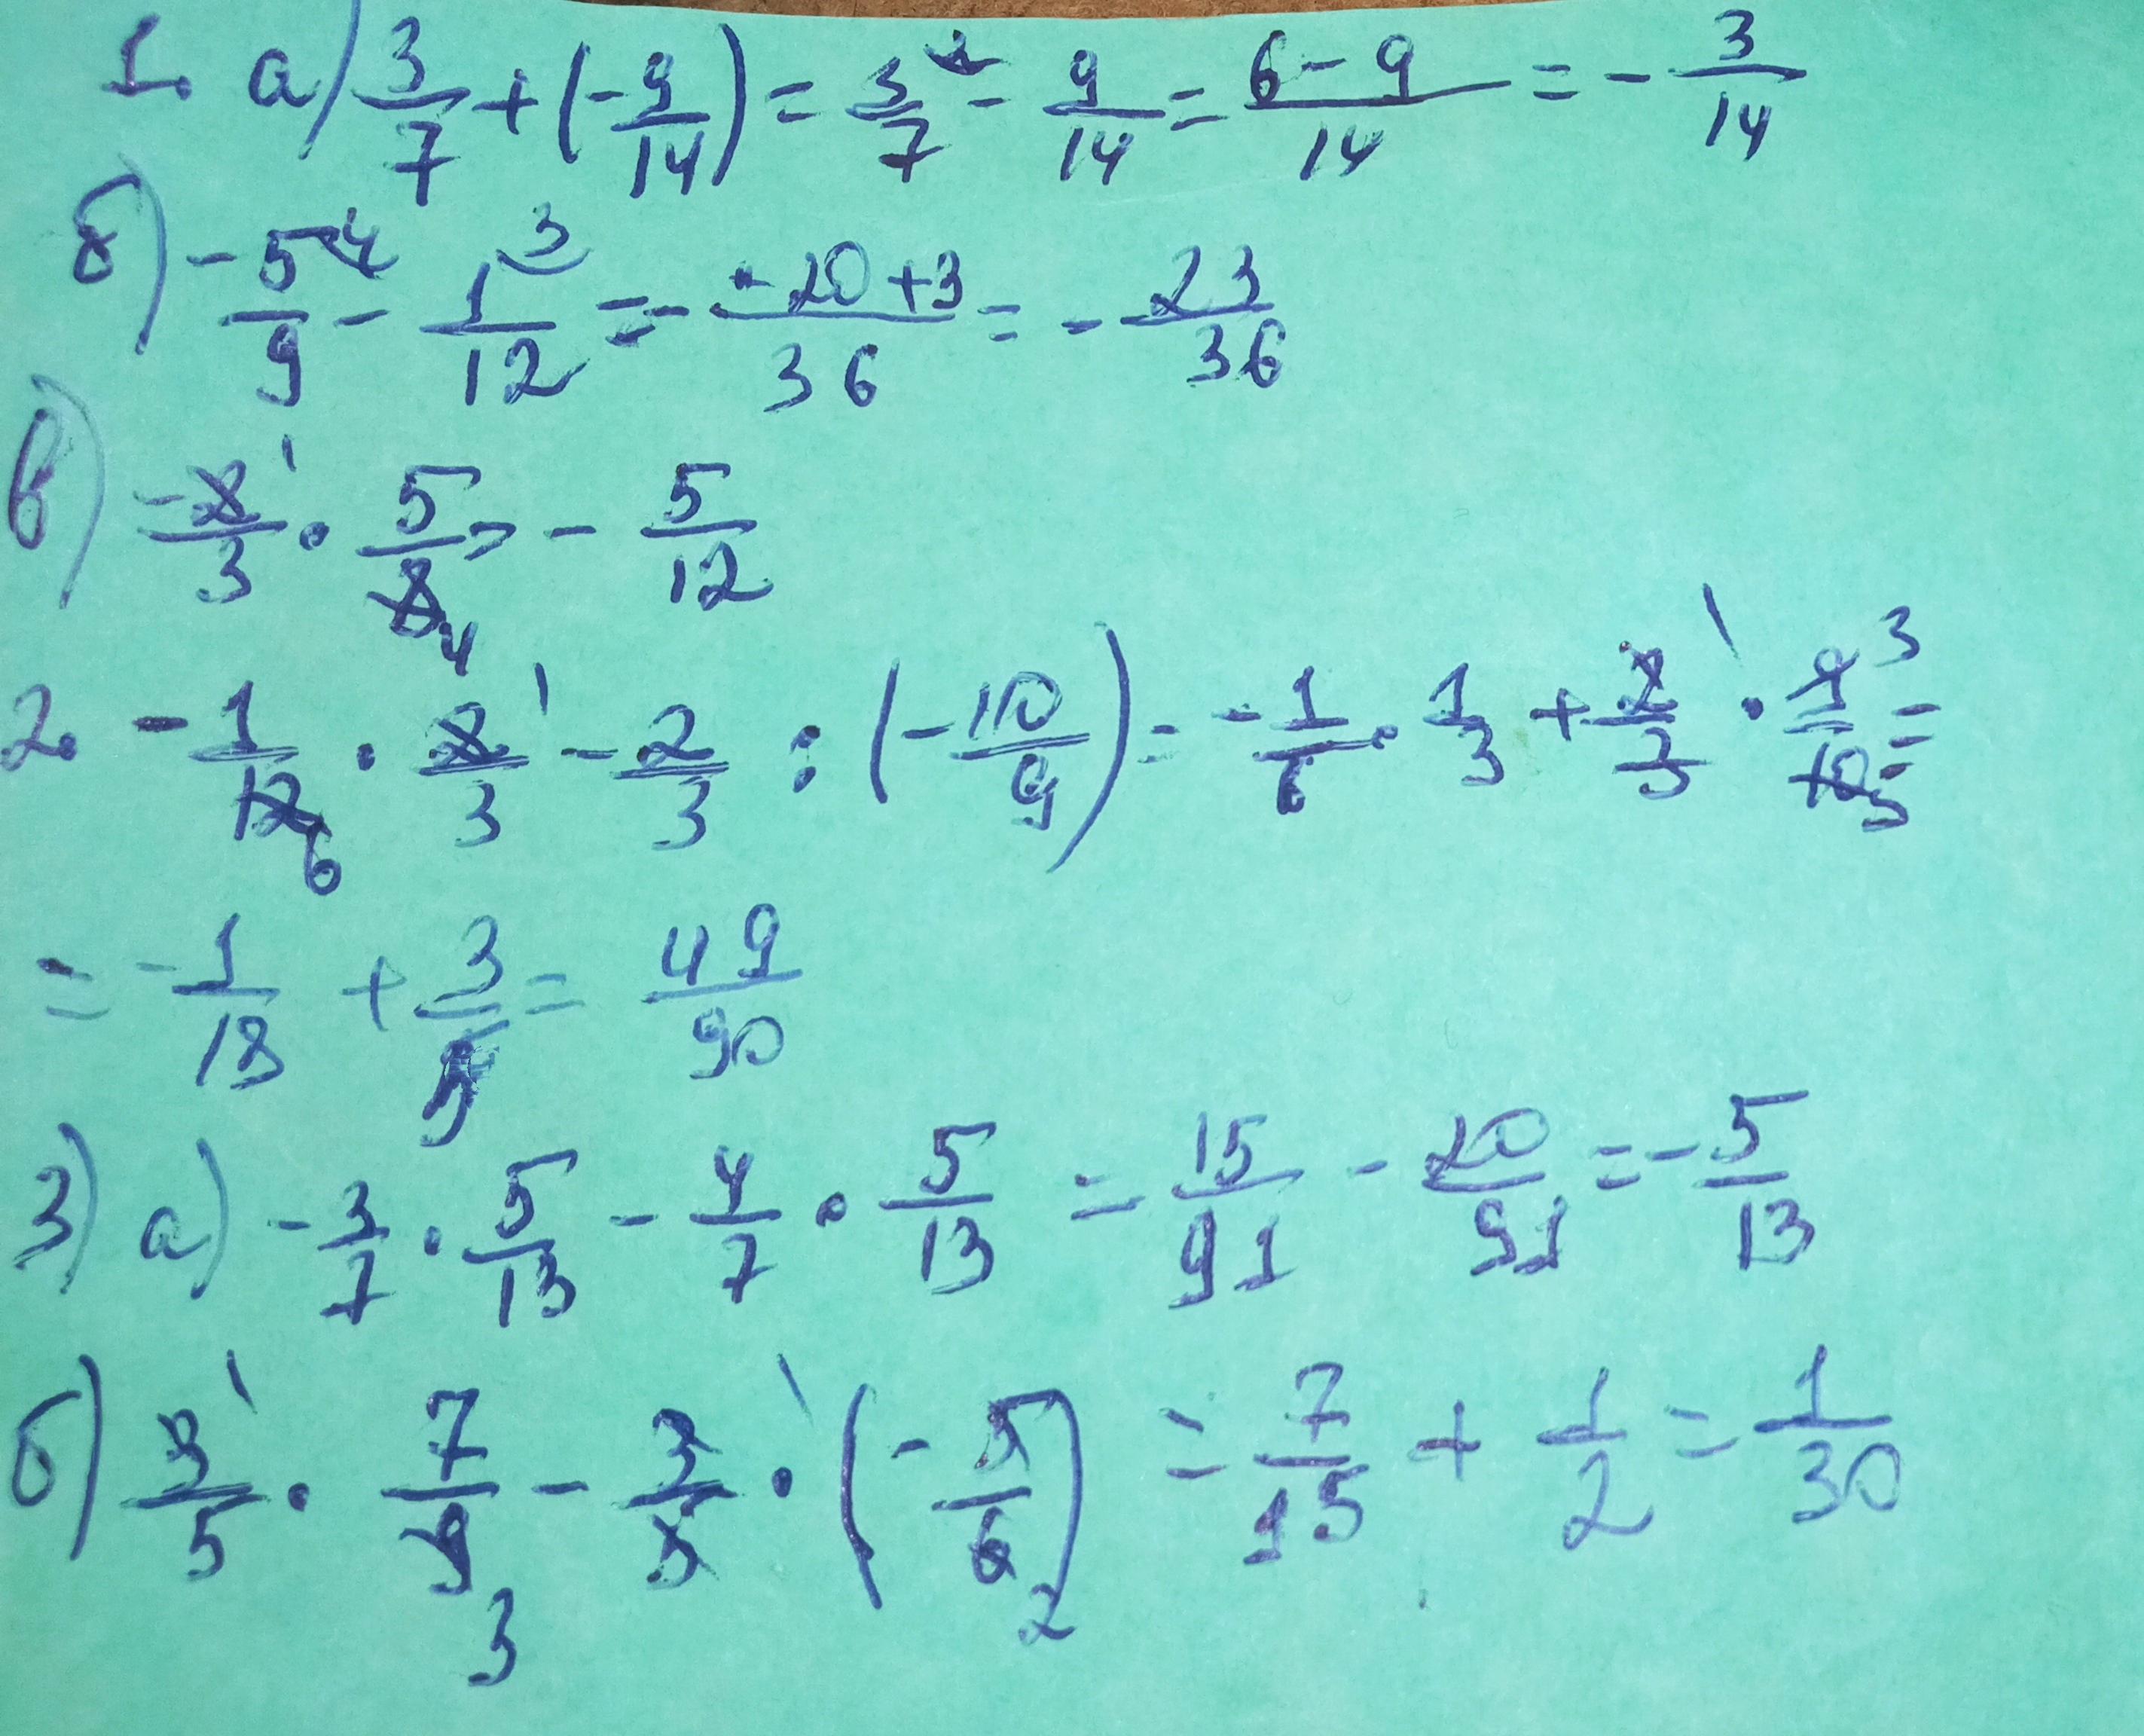 1. а) 3/7 + (-9/14) = 3/7 ² - 9/14 = 6-9/14 = - 3/14
б) -5/9 ⁴ - 1/12 ³ = - -20+3/36 = - 23/36
в) -2/3 ¹ · 5/8 ₄ = - 5/12
2. - 1/12 ₆ · 2/3 ¹ - 2/3 : (-10/9) = - 1/6 · 1/3 + 2/3 ¹ · 9/10 ³ ₅ =
= - 1/18 + 3/5 = 49/90
3) а) - 3/7 · 5/13 - 4/7 · 5/13 = 15/91 - 20/91 = - 5/13
б) 3/5 ¹ · 7/9 ₃ - 3/5 ¹ · (- 5/6 ₂) = 7/15 + 1/2 = 1/30